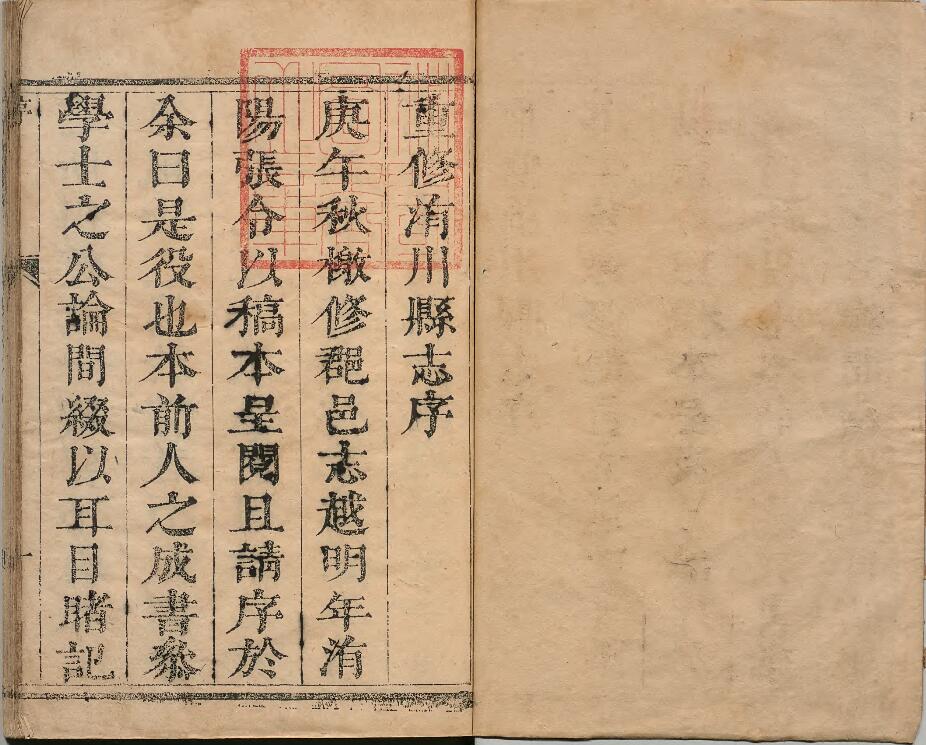 重修洧川縣志序
庚午秋檄修郡邑志越明年洧
陽張令以稿本呈閱且請序於
余曰是役也本前人之成書叅
學士之公論間綴以耳目睹記